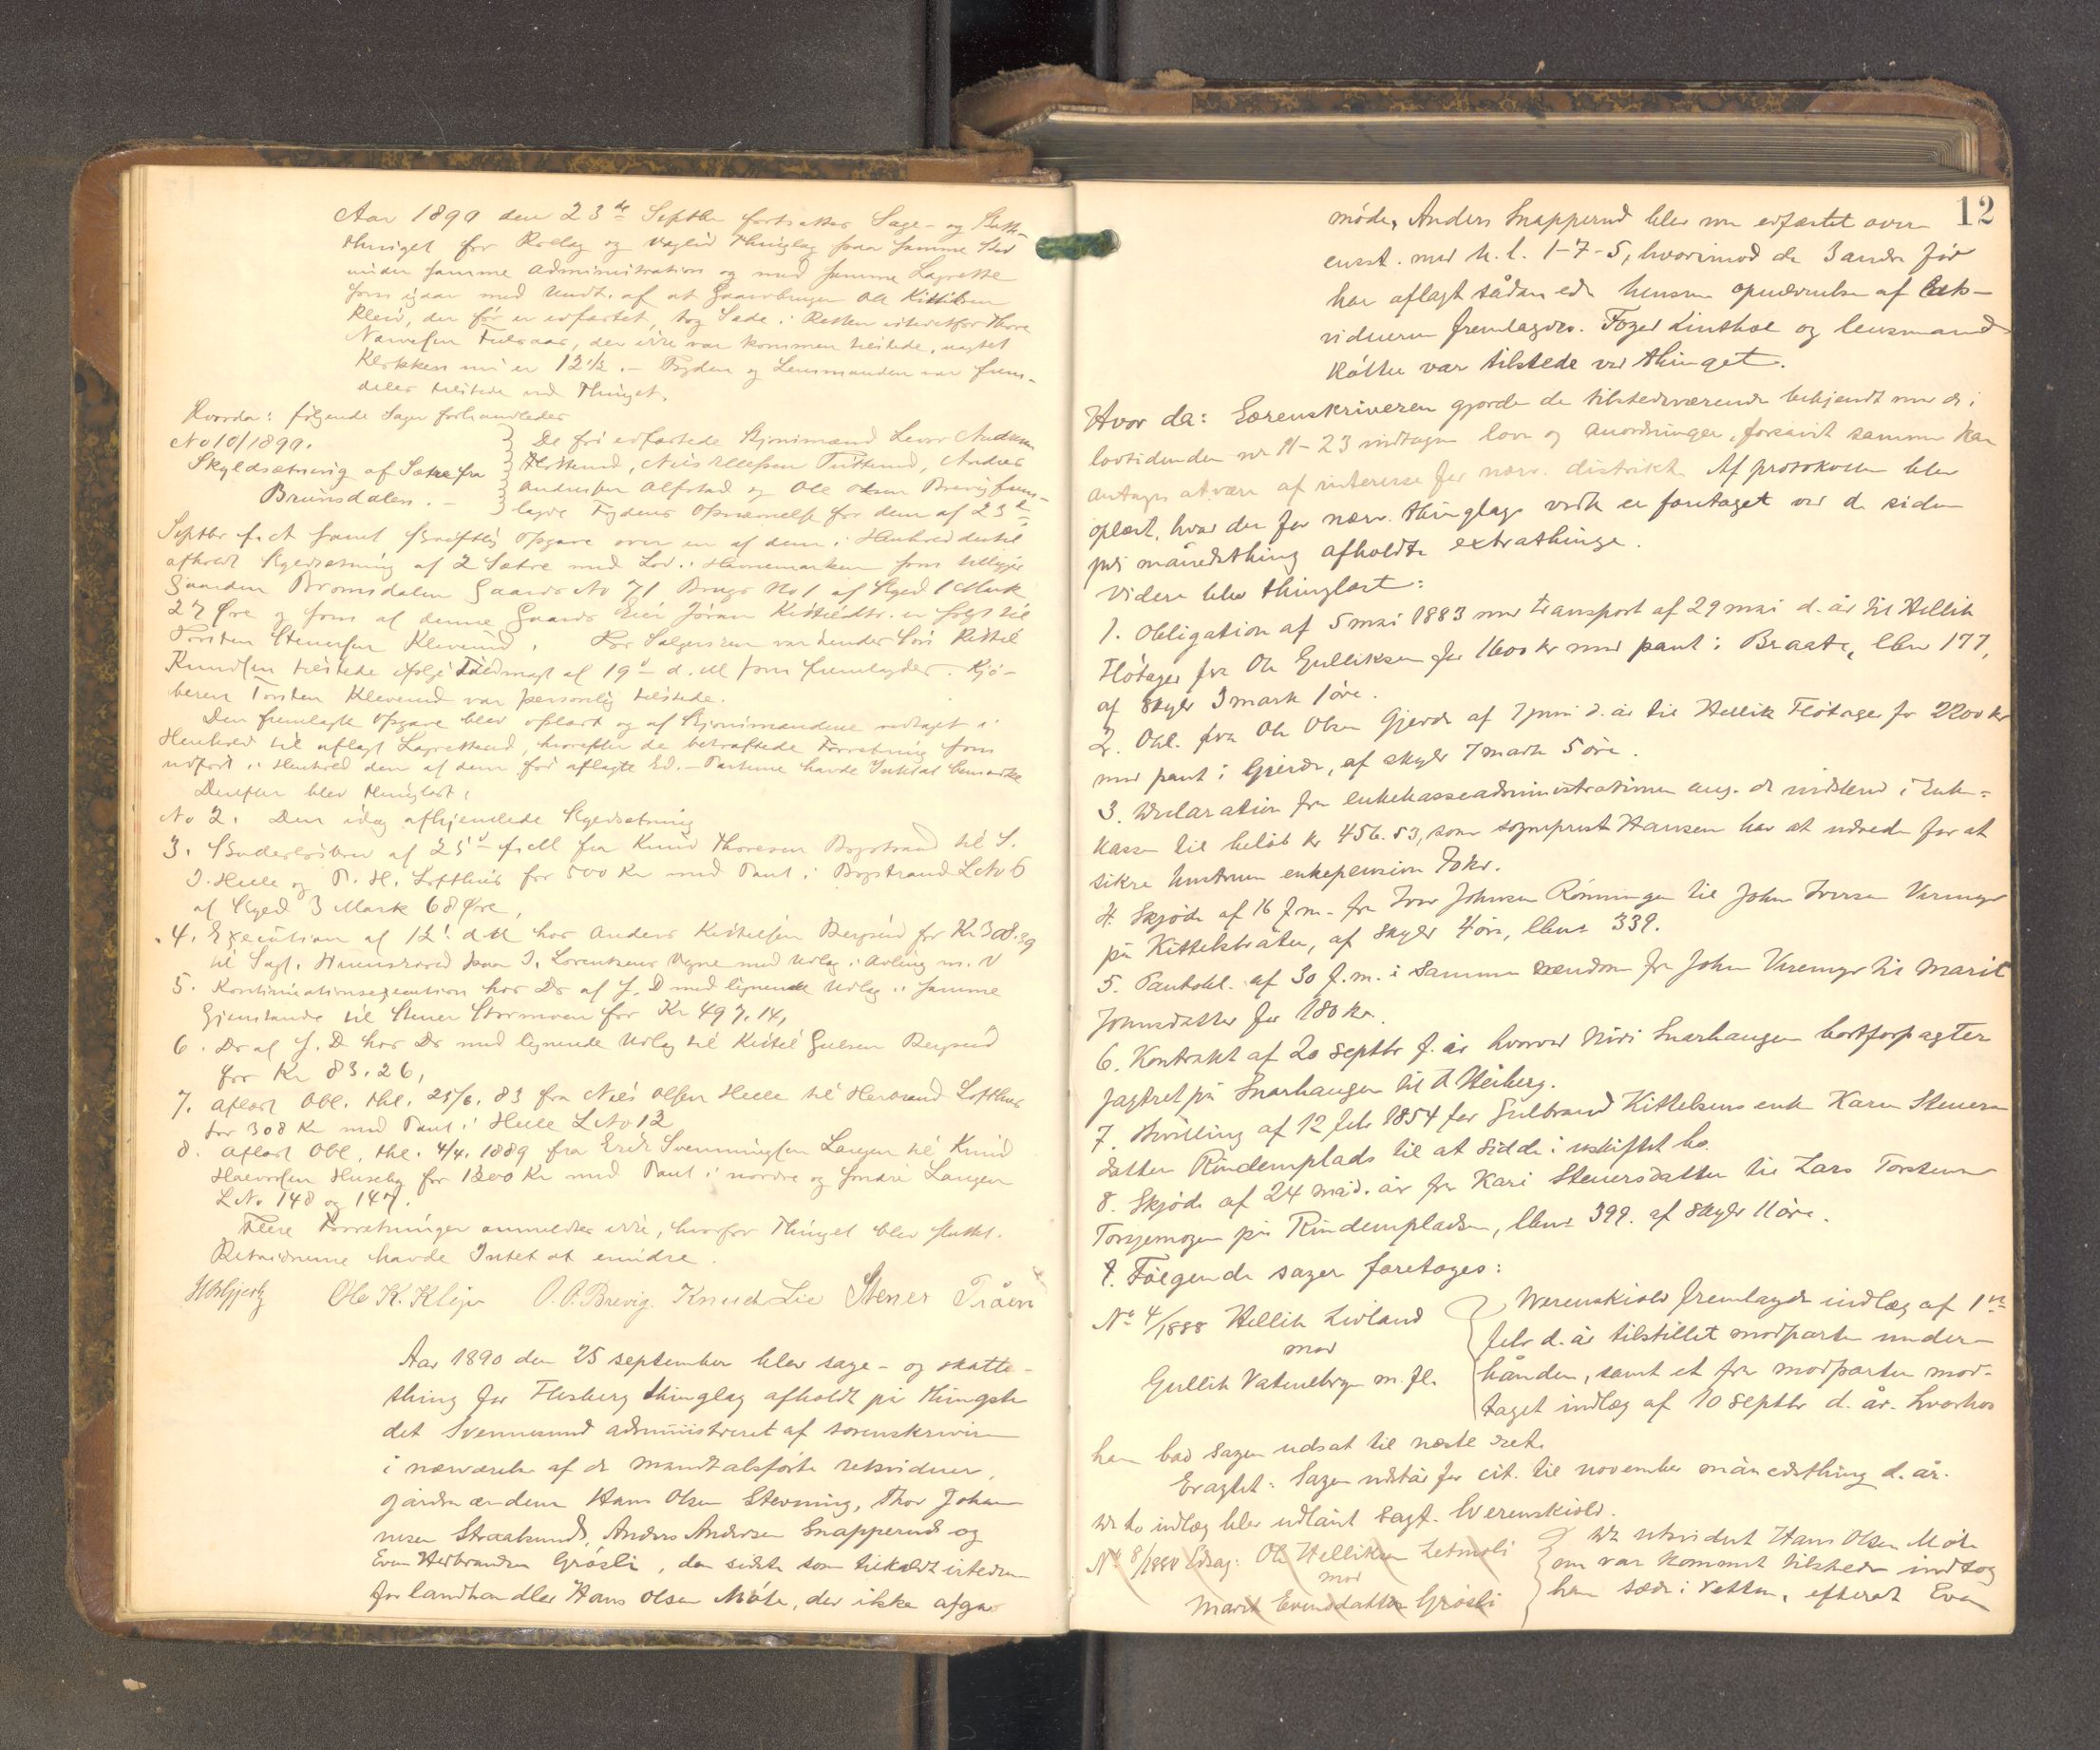 Aar 1890 den 23de Septbr fortsattes Sage- og Skatte-
thinget for Rollag og Veglid Thinglag paa samme Sted
under samme Administration og med samme Lagrette
som igaar med Undt. af at Gaardbruger Ole Kittilsen
Kleiv, der før er edfæstet, tog Sæde i Retten istedetfor Thore
Narvesen, der ikke var kommen tilstede, uagtet
Klokken nu er 12 1/2. - Fogden og Lensmanden var frem-
deles tilstede ved Thinget.
Hvorda: følgende Sager forhandledes
No 10/1890.
Skyldsætning af Sætre fra
Brunsdalen. -
De før edfæstede Skjønsmænd Levor Andersen
, Niels Tuftund, Anders
Andersen Alfstad og Ole Olsen Brevig frem-
lagde Fogdens Opnævnelse for dem af 23de
Septbr f. A samt skriftlig Opgave over en af dem i Henhold dertil
afholdt Skyldsætning af 2 Sætre med Løv i Havnemarken som tilligger
Gaarden Bromsdalen Gaards No 71 Brugs No 1 af Skyld 1 Mark
27 Øre og som af denne Gaards Eier Jøran Kittilsdtr. er solgt til
Torsten Stenersen Klevund. For Sælgersken var hendes Søn Kittil
Knudsen tilstede ifølge Fuldmagt af 19de d. M som fremlagdes. Kjø-
beren Torsten Klevund var personlig tilstede.
Den fremlagte Opgave blev oplæst og af Skjønsmændene vedtaget i
Henhold til aflagt Lagrettesed, hvorefter de bekræftede Forretning som
udført i Henhold den af dem før aflagte Ed. - Parterne havde Intet at bemærke
Derefter blev thinglæst:
No 2. Den idag afhjemlede Skyldsætning
3. Skadesløsbrev af 25de f. M fra Knud Thoresen Bogstrand til S.
I. Helle og T. H. Lofthus for 500 Kr med Pant i Bogstrand LNo 6
af Skyld 3 Mark 68 Øre.
4. Execution af 12te d M hos Anders Kittilsen Bergsud for Kr 308.39
til Sagf. paa I. Lorentzens Vegne med Udlæg i Avling m. V
5. Kontinuationsexecution hos Do af s. D med lignende Udlæg i samme
Gjenstande til Stener Stormoen for Kr 497.14,
6. Do af s. D hos Do med lignende Udlæg til Kittil Gulsen Bergsud
for Kr 83.26,
7. Aflæst Obl. thl. 25/6. 83 fra Niels Olsen Helle til Herbrand Lofthus
for 308 Kr med Pant i Helle LNo 12
8. Aflæst Obl. thl. 4/4. 1889 fra Erik Svenningsen Langen til Knud
Halvorsen Huseby for 1200 Kr med Pant i nordre og søndre Langen
LNo 148 og 147.
Flere Forretninger anmeldtes ikke, hvorfor Thinget blev sluttet.
Retvidnerne havde Intet at erindre.
HMGjertz Ole K. Klejv O. O. Brevig. Knud Lie Stener Tråen
Aar 1890 den 25 september blev sage- og skatte-
thing for Flesberg thinglag afholdt på thingste-
det Svennesund administreret af sorenskriveren
i nærværelse af de mandtalsførte retsvidner,
gårdmændene Hans Olsen Stevning, Thor Johan-
nesen Straalsund, Anders Andersen Snapperud og
Even Herbrandsen Grøsli, den sidste som tilkaldt istedenfor
for landhandler Hans Olsen Moten, der ikke afgav
12
møde, Anders Snapperud blev nu edfæstet over-
ensst. med n. l. 1-7-5, hvorimod de 3 andre før
har aflagt sådan ed. hensen opnævnelse af lag-
vidnerne fremlagdes. Foged Lindthoe og lensmand
Kåtter var tilstede ved thinget.
Hvor da: Sorenskriveren gjorde de tilstedeværende bekjendt med de i
lovtidenden nr 11-23 indtagne love og anordninger, forsåvidt samme kan
antages at være af interesse for nærv. distrikt. Af protokollen blev
oplæst, hvad der for nærv. thinglags vedk. er foretaget ved de siden
på månedsthing afholdte extrathinge.
Videre blev thinglæst:
1. Obligation af 5 mai 1883 med transport af 29 mai d. år til Hellik
Fløtager fra Ole Gulliksen for 1600 kr med pant i Braate, lbnr 177,
af skyld 3 mark 1 øre.
2. Obl. fra Ole Olsen Gjerde af 7 juni d. år til Hellik Fløtager for 2200 kr
med pant i Gjerde, af skyld 7 mark 5 øre.
3. Deklaration fra enkekasseadministrationen ang. de indskud i enke-
kassen til beløb kr 456.53, som sogneprest Hansen har at udrede for at
sikre hustruen enkepension 70 kr.
4. Skjøde af 16 f. m. fra Iver Johnsen Rønningen til John Iversen Varemyr
på Kittelsbråten, af skyld 4 øre, lbnr 339.
5. Pantobl. af 30 f. m. i samme eiendom fra John Varemyr til Marit
Johnsdatter for 180 kr.
6. Kontrakt af 20 septbr f. år hvorved Niri Snarhaugen bortforpagter
jagtret på Snarhaugen til A Heiberg.
7. Bevilling af 12 febr 1854 for Gulbrand Kittelsens enke Karen Steners-
datter Rindemplads til at sidde i uskiftet bo.
8. Skjøde af 24 mai d. år fra Kari Stenersdatter til Lars Torstensen
Torgjemogen på Rindempladsen, lbnr 399. af skyld 11 øre.
9. Følgende sager foretoges:
No 4/1888 Hellik Livland
mod
Gullik Vatnebryn m. fl.
Werenskiold fremlagde indlæg af 1ste
febr d. år tilstillet modparten under-
hånden, samt et fra modparten mod-
taget indlæg af 10 septbr d. år. hvorhos
han bad sagen udsat til næste ret.
Eragtet: Sagen udstår for cit. til november månedsthing d. år.
De to indlæg blev udlånt sagf. Werenskiold.
No 8/1888 Edsag: Ole Helliksen Letmoli
mod
Marit Evensdatter Grøsli
Da retsvidnet Hans Olsen Moten
nu var kommet tilstede indtog
han sæde i retten, efterat Even